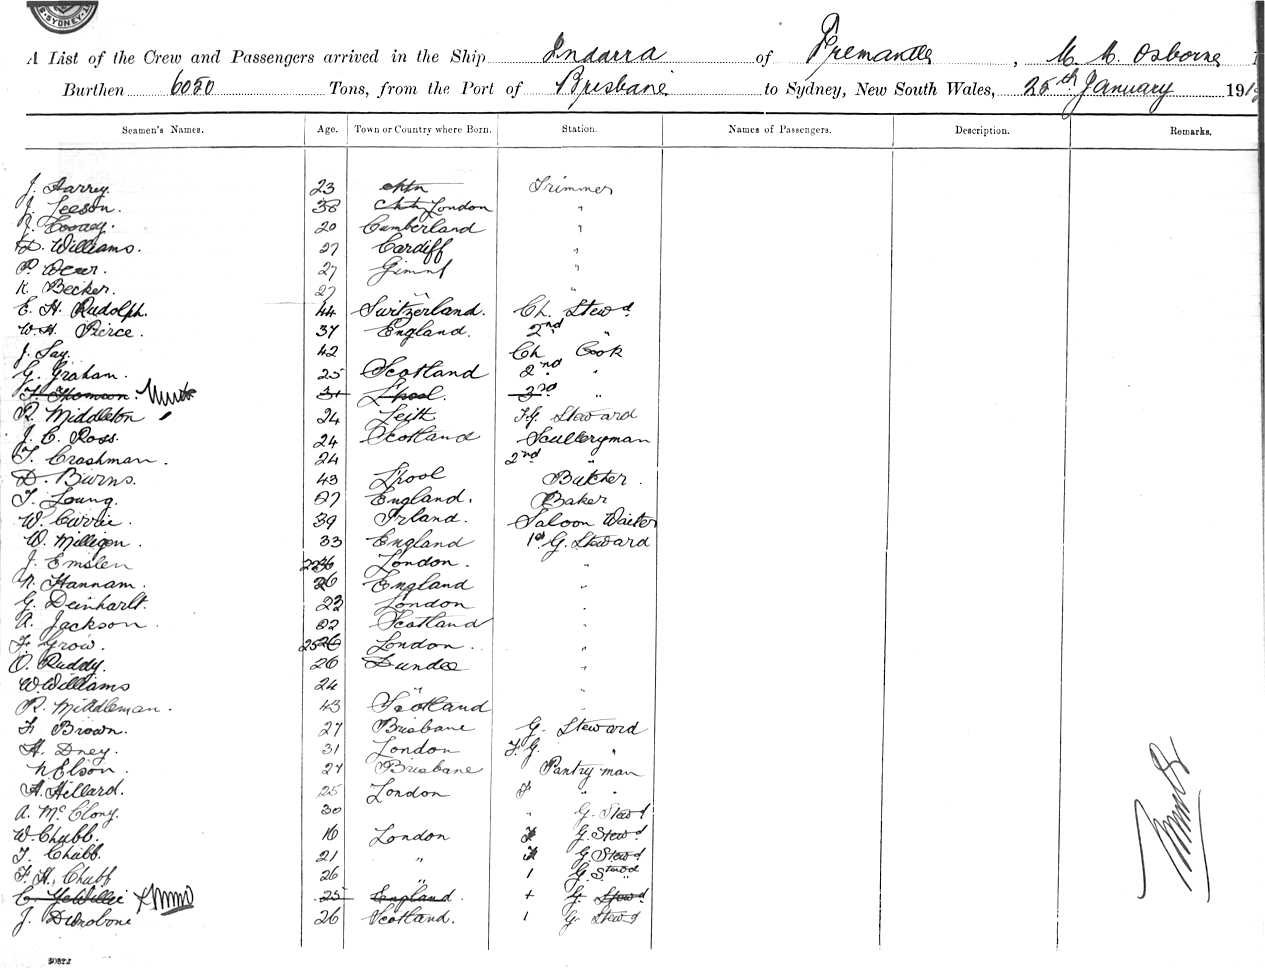 SYDNEY
A List of the Crew and Passengers arrived in the Ship Indarra of Fremantle, M. M. Osborne
Burthen 6050 Tons, from the Port of Brisbane to Sydney, New South Wales, 25th January 191
Seamen's Names. Age. Town or Country where Born. Station. Names of Passengers. Description. Remarks.
J. Harrey. 23 Trimmer
J. Leeson. 38 London "
J. 20 Cumberland "
D. Williams. 27 Cardiff "
P. 27 "
K. Becker. 27 " "
E. H. Rudolph. 44 Switzerland. Ch. Stewd
W. H. Pierce. 37 England. 2nd "
J. Tay. 42 Ch Cook
G. Graham. 25 Scotland 2nd "
T. Thomson. 31 L'pool. 3rd "
R. Middleton 24 Leith F.G. Steward
J. C. Ross. 24 Scotland Sculleryman
T. Crashman. 24 2nd "
D. Burns. 43 L'pool Butcher.
T. Young. 27 England. Baker
W. Currie. 39 Irland. Saloon Waiter
W. Milligen. 33 England 1st G. Steward
J. Emslen London. "
N. Hannam. 26 England "
G. Deinhardt. 23 London "
A. Jackson. 22 Scotland "
F. Grow. London. "
O. Ruddy. 26 Dundee "
W. Williams 24 " "
R. Middleman. 43 Scotland "
F. Brown. 27 Brisbane G. Steward
H. Dney. 31 London F. G. "
Nelson. 27 Brisbane Pantry man
H. Hillard. 25 London F " "
A. McClony. 30 " G. Stewd
W. Chubb. 16 London F G. Stewd
T. Chubb. 21 " F G. Stewd
F. H. Chubb 26 " 1 G. Stewd
C. 25 England. + G. Stewd
J. 26 Scotland. 1 G. Stewd